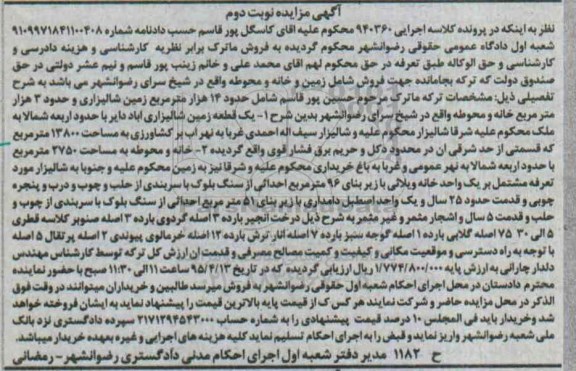 آگهی مزایده نوبت دوم
نظر به اینکه در پرونده کلاسه اجرایی ۹۴۰۳۶۰ محکوم علیه اقای کاسگل پور قاسم حسب دادنامه شماره ۹۱۰۹۹۷۱۸۴۱۱۰۰۴۰۸
شعبه اول دادگاه عمومی حقوقی رضوانشهر محکوم گردیده به فروش ماترک برابر نظریه کارشناسی و هزینه دادرسی و
کارشناسی و حق الوکاله طبق تعرفه در حق محکوم لهم اقای محمد علی و خانم زینب پور قاسم و نیم عشر دولتی در حق
صندوق دولت که ترکه بجامانده جهت فروش شامل زمین و خانه و محوطه واقع در شیخ سرای رضوانشهر می باشد به شرح
تفصیلی ذیل: مشخصات ترکه ماترک مرحوم حسین پور قاسم شامل حدود ۱۴ هزار مترمربع زمین شالیزاری و حدود ۳ هزار
متر مربع خانه و محوطه واقع در شیخ سرای رضوانشهر بدین شرح ۱- یک قطعه زمین شالیزاری اباد دایر با حدود اربعه شمالا به
ملک محکوم علیه شرقا شالیزار محکوم علیه و شالیزار سیف اله احمدی غربا به نهر اب بر کشاورزی به مساحت ۱۳۸۰۰ مترمربع
که قسمتی از حد شرقی ان در محدود دکل و حریم برق فشار قوی واقع گردیده ۲- خانه و محوطه به مساحت ۲۷۵۰ مترمربع
با حدود اربعه شمالا به نهر عمومی و غربا به باغ خریداری محکوم علیه و شرقا نیز به زمین محکوم علیه و جنوبا به شالیزار مورد
تعرفه مشتمل بر یک واحد خانه ویلائی با زیر بنای ۹۶ مترمربع احداثی از سنگ بلوک با سربندی از حلب و چوب و درب و پنجره
چوبی و قدمت حدود ۲۵ سال و یک واحد اسطبل دامداری با زیر بنای ۵۱ متر مربع احداثی از سنگ بلوک با سربندی از چوب و
حلب و قدمت ۵ سال و اشجار مثمر و غیر مثمر به شرح ذیل درخت انجیر بارده ۳ اصله گردوی بارده ۳ اصله صنوبر کلاسه قطری
۵ والی ۳۰ ۷۵ اصله گلابی بارده ۱ اصله گوجه سبز بارده ۷ اصله انار ترش بارده ۱۲ اصله خرمالوی پیوندی ۲ اصله پرتقال ۵ اصله
با توجه به راه دسترسی و موقعیت مکانی و کیفیت و کمیت مصالح مصرفی و قیمت ان ارزش کل ترکه توسط کارشناس مهندس
دلدار چارانی به ارزش پایه ۱/۷۷۴/۸۰۰/۰۰۰ ریال ارزیابی گردیده که در تاریخ ۹۵/۴/۱۳ ساعت ۱۱ الی ۱۱:۳۰ صبح با حضور نماینده
محترم دادستان در محل اجرای احکام شعبه اول حقوقی رضوانشهر به فروش میرسد طالبین و خریداران میتوانند در وقت فوق
الذکر در محل مزایده حاضر و شرکت نمایند هر کس ک از قیمت پایه بالاترین قیمت را پیشنهاد نماید به ایشان فروخته خواهد
شد وخریدار باید فی المجلس ۱۰ درصد قیمت پیشنهادی را به شماره حساب ۲۱۷۱۲۹۴۵۴۳۰۰۰ سپرده دادگستری نزد بانک
ملی شعبه رضوانشهر واریز نماید و قبض را به اجرای احکام تسلیم نماید کلیه هزینه های اجرایی و غیره بعهده خریدار میباشد.
ح ۱۱۸۲ مدیر دفتر شعبه اول اجرای احکام مدنی دادگستری رضوانشهر- رمضانی